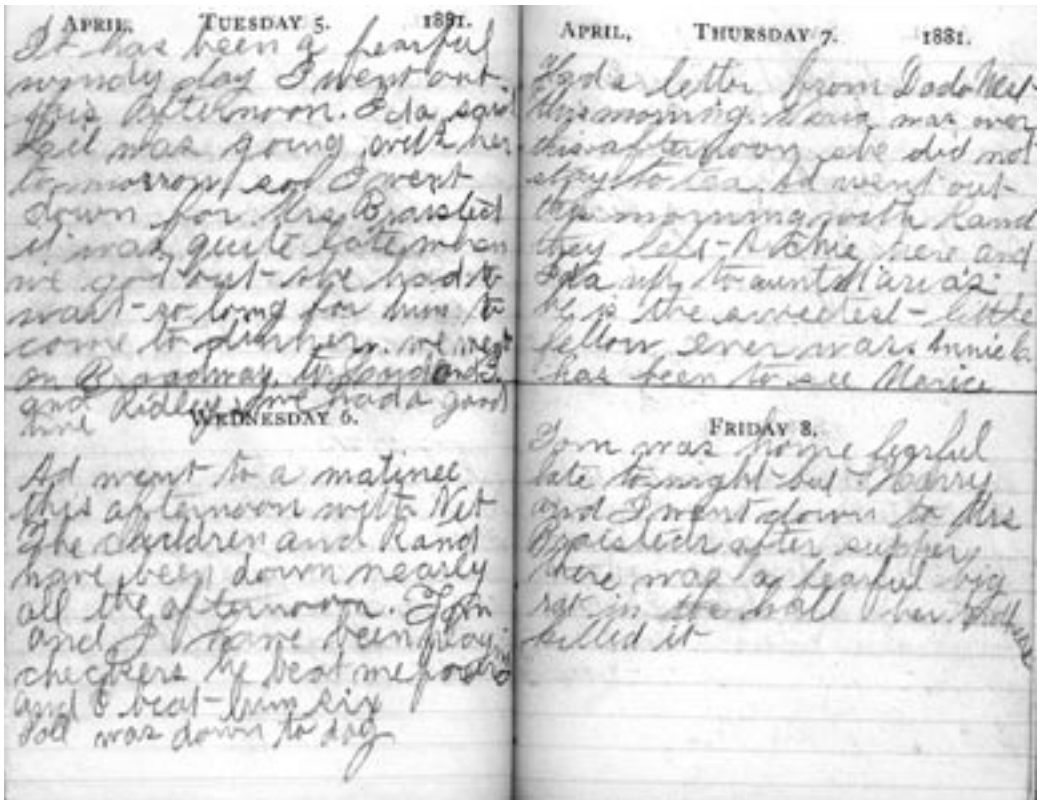 APRIL, TUESDAY 5. 1881.
It has been a fearful
windy day I went out
this afternoon. Ida said
was going with her
tomorrow so I went
down for Mrs Braisted
it was quite late when
we got out she had to
wait so long for him to
come to dinner. we went
on Broadway, to
and Ridleys we had a good
time
WEDNESDAY 6.
Ad went to a matinee
this afternoon with Net
The children and Rand
have been down nearly
all the afternoon. Tom
and I have been playing
checkers he beat me
and I beat him six
was down to day
APRIL, THURSDAY 7. 1881.
Had a letter from Dado
this morning. was over
this afternoon she did not
stay to tea. Ad went out
this morning with Rand
they left Archie here and
Ida up to aunt Maria's
he is the sweetest little
fellow ever was. Annie
has been to see
FRIDAY 8.
Tom was home fearful
late tonight but Harry
and I went down to Mrs
Braisteds after supper
there was a fearful big
rat in the hall her
killed it